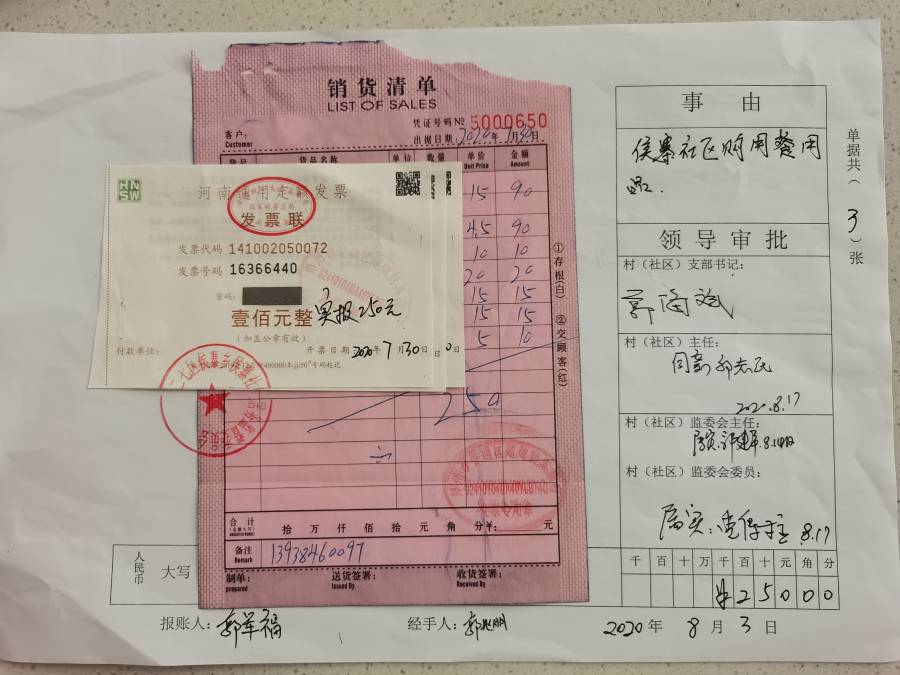 销货清单
LIST OF SALES
凭证号码 № 5000650
客户:
Customer
出据日期 2020年7月30日
货号 货品名称 单位 数量 单价 金额
Unit Price Amount
15 90
4.5 90
10 10
20 20
15 15
15 15
5 10
250
①存根(白) ②交顾客(红)
合计
拾 万 仟 佰 拾 元 角 分 ¥: 元
备注
Remark
13938460097
制单:
prepared
送货签署:
Issued By
收货签署:
Received By
HN
SW
河南通用定额发票
发票联
发票代码 141002050072
发票号码 16366440
密码:
壹佰元整 实报250元
(加盖公章有效)
付款单位:
开票日期 2020年7月30日
事由
侯寨社区购用餐用
品.
领导审批
村(社区)支部书记:
村(社区)主任:
同意 郭志民
2020.8.17
村(社区)监委会主任:
属实
村(社区)监委会委员:
属实:
8.17
单据共(3)张
人民币
大写
千 百 十 万 千 百 十 元 角 分
¥ 2 5 0 0 0
报账人: 郭军福
经手人:
2020年8月3日